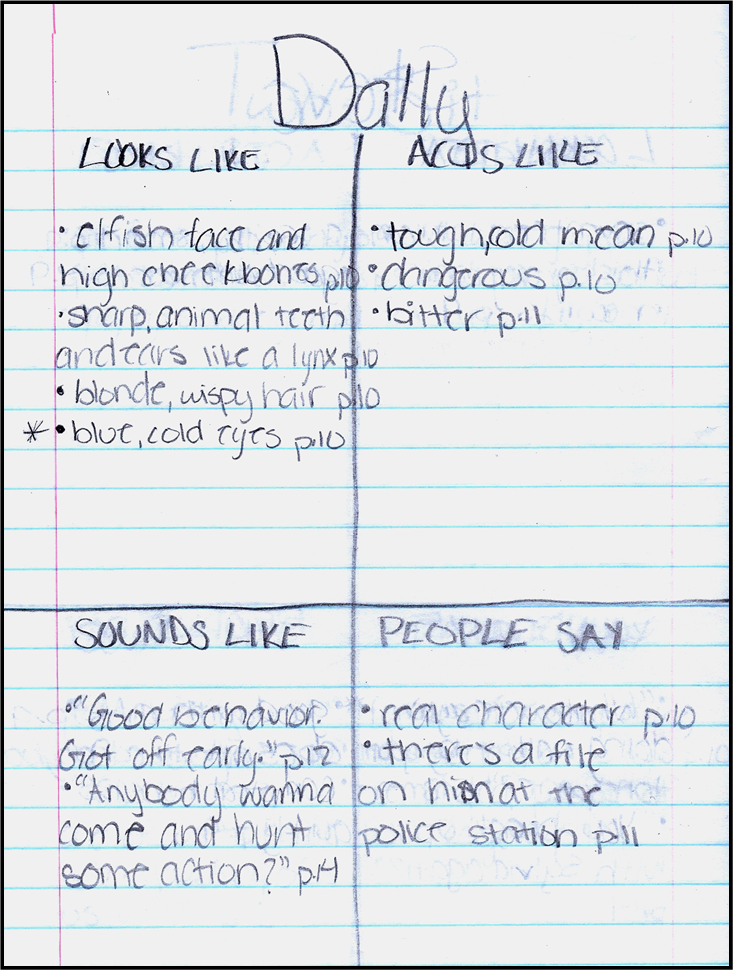 Dally
LOOKS LIKE
• elfish face and
high cheekbones p.10
• sharp, animal teeth
and ears like a lynx p.10
• blonde, wispy hair p.10
* • blue, cold eyes p.10
ACTS LIKE
• tough, cold mean p.10
• dangerous p.10
• bitter p.11
SOUNDS LIKE
• "Good behavior.
Got off early." p.12
• "Anybody wanna
come and hunt
some action?" p.14
PEOPLE SAY
• real character p.10
• there's a file
on him at the
police station p.11